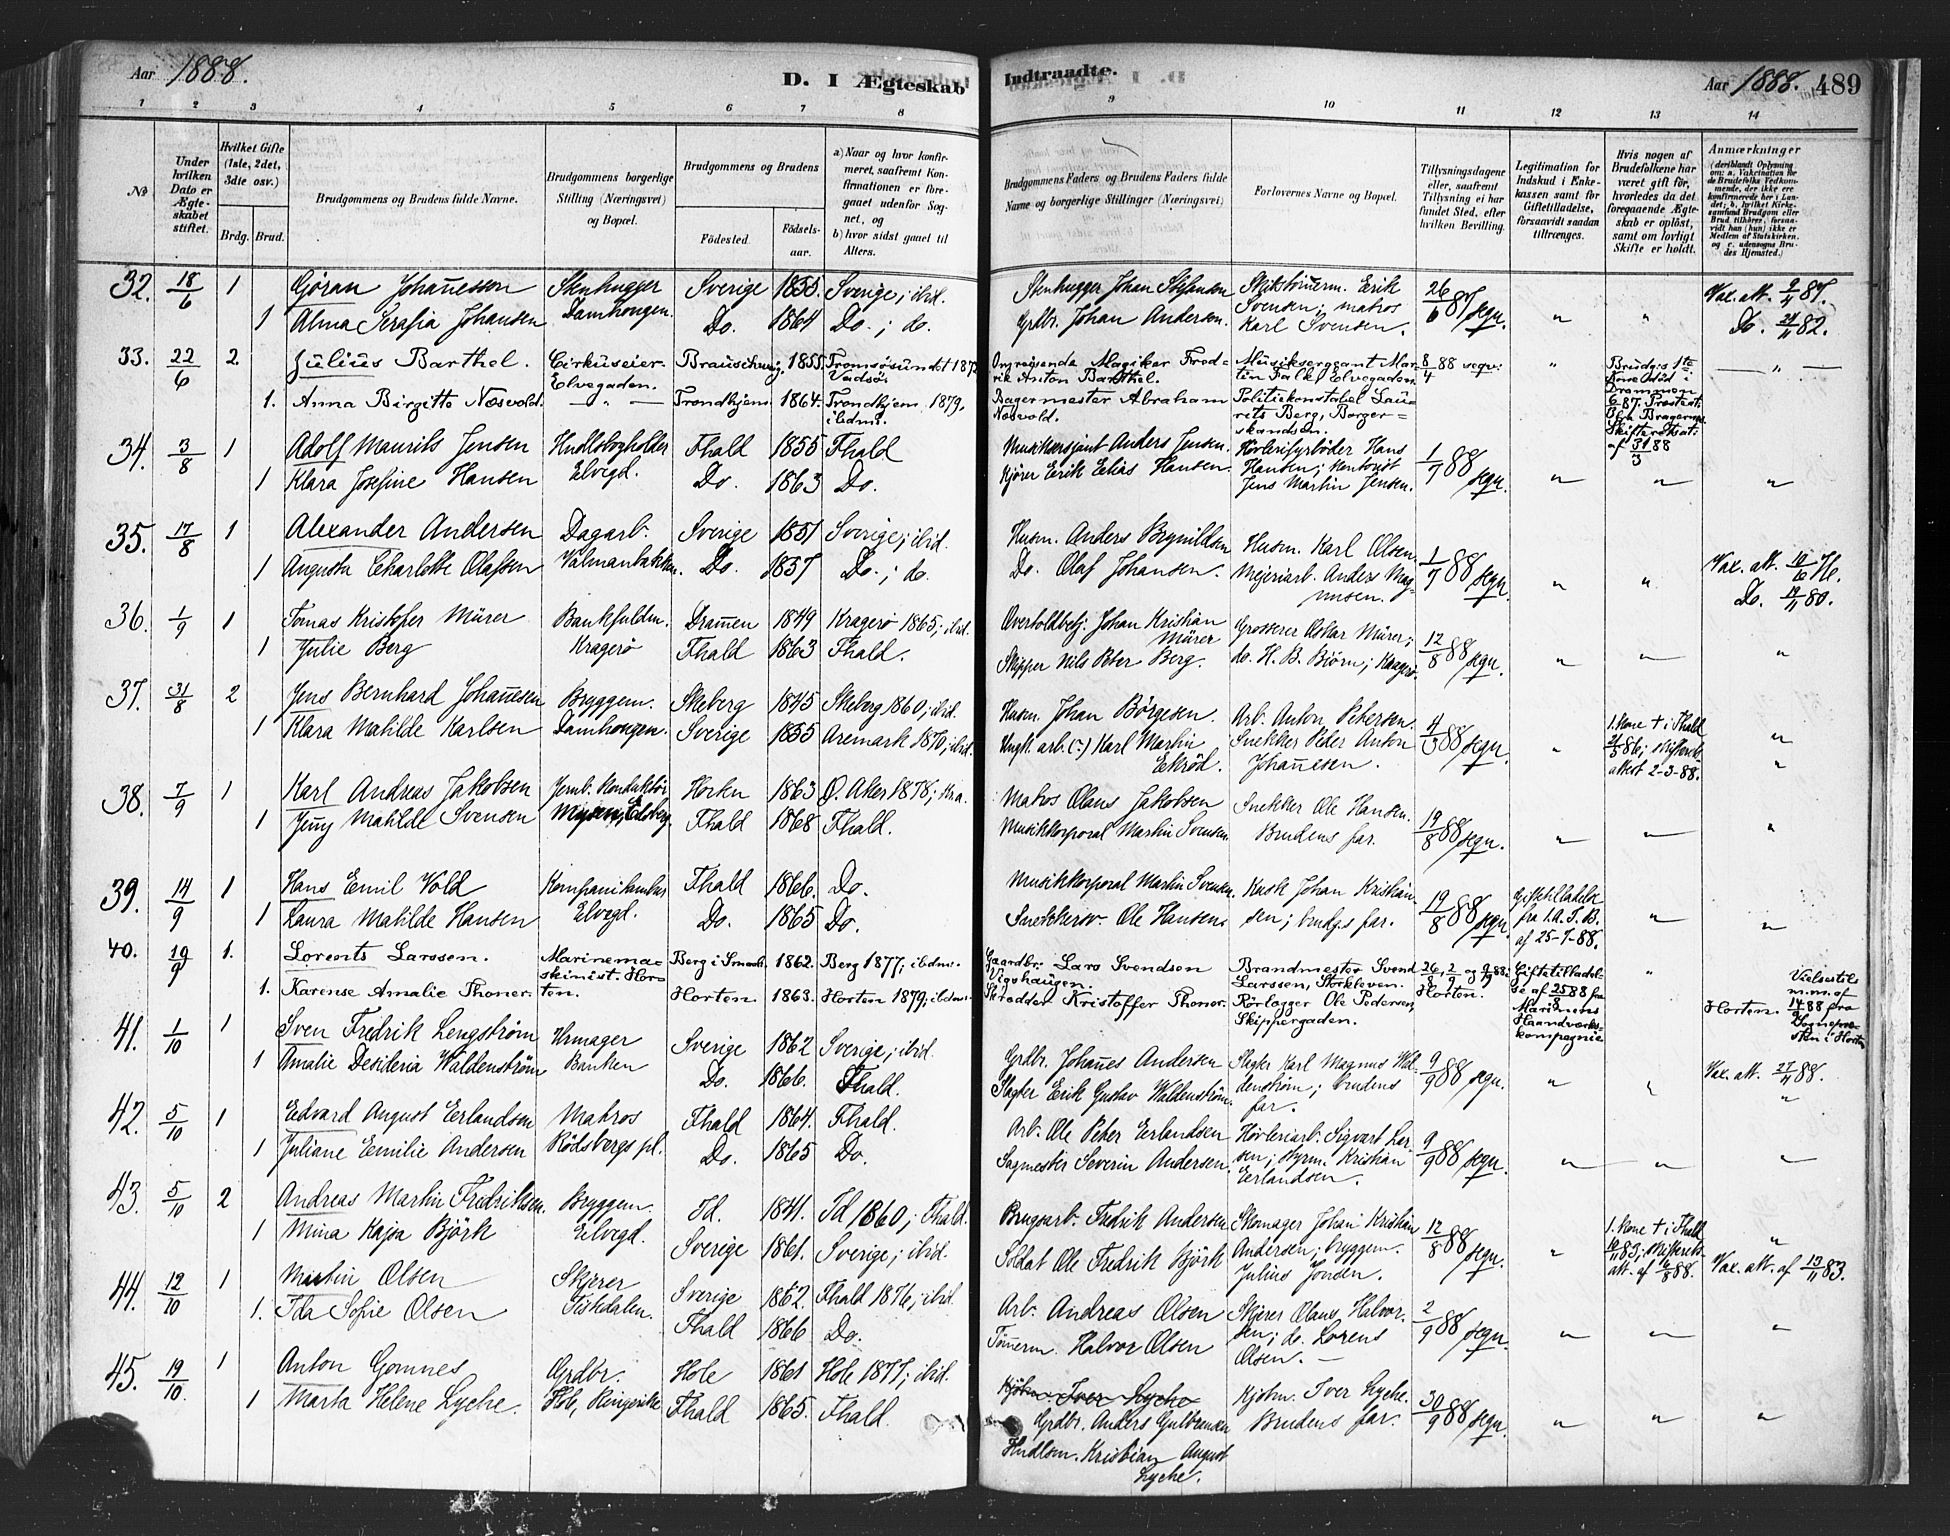 Aar 1888.
D. I Ægteskab
Indtraadte.
Aar 1888. 489
1 2 3 4 5 6 7 8 9 10 11 12 13 14
№
Under hvilken Dato er Ægteskabet stiftet.
Hvilket Gifte (1ste, 2det, 3die osv.)
Brdg. Brud.
Brudgommens og Brudens fulde Navne.
Brudgommens borgerlige Stilling (Næringsvei) og Bopæl.
Brudgommens og Brudens
Fødested.
Fødselsaar.
a) Naar og hvor konfirmeret, saafremt Konfirmationen er foregaaet udenfor Sognet, og
b) hvor sidst gaaet til Alters.
Brudgommens Faders og Brudens Faders fulde Navne og borgerlige Stillinger (Næringsvei)
Forlovernes Navne og Bopæl.
Tillysningsdagene eller, saafremt Tillysning ei har fundet Sted, efter hvilken Bevilling.
Legitimation for Indskud i Enkekassen samt for Giftetilladelse, forsaavidt saadan tiltrænges.
Hvis nogen af Brudefolkene har været gift før, hvorledes da det foregaaende Ægteskab er opløst, samt om lovligt Skifte er holdt.
Anmærkninger
32. 18/6 1 Gjøran Johannesson Stenhugger Sverige 1855. Sverige; ibid. Stenhugger Johan Stefansen Erik 26/6 87 segn. Vax. att. 87.
1 Alma Serafia Johansen Damhougen. Do. 1864 Do.; do. Grdbr. Johan Andersen. Svensen; matros Karl Svensen. Do. 82.
33. 22/6 2. Julius Barthel. Cirkuseier Elvegaden. Braunschweig. 1855. Tromsøsundet Vadsø. Omreisende Magiker Fredrik Anton Barthel. Musiksergeant Martin Falk, Elvegaden 8/4 88 segv:
1. Anna Birgitte Næsvold. Trondhjem 1864. Trondhjem 1879, ibdm. Bagermester Abraham Næsvold. Politikonstabel Laurits Berg, Borgerskandsen.
af 31/3 88
34. 3/8 1 Adolf Maurits Jensen Elvegd. Fhald 1855 Fhald Anders Jensen Hans 1/7 88 segn.
1 Klara Josefine Hansen Do. 1863 Do. Kjører Erik Elias Hansen. Hansen; Jens Martin Jensen.
35. 17/8 1 Alexander Andersen Dagarb. Sverige 1851 Sverige; ibid. Husm. Anders Brynildsen Husm. Karl Olsen; 1/7 88 segn.
1 Augusta Charlotte Olafsen Valmanbakken. Do. 1857 Do.; do. Do. Olaf Johansen. Mejeriarb. Anders Magnusen. Vax. att. Do. 80.
36. 1/9 1 Tomas Kristofer Mürer Bankfuldm. Drammen 1849 Kragerø 1865; ibid. Overtoldbetj. Johan Kristian Mürer Grosserer Oskar Mürer; 12/8 88 segn.
1 Julie Berg Kragerø Fhald 1863 Fhald. Skipper Nils Peter Berg. do. H. B. Biørn; Kragerø.
37. 31/8 2 Jens Bernhard Johannesen Bryggem. Skeberg 1845 Skeberg 1860; ibid. Husm. Johan Börgesen. Arb. Anton Petersen. 4/3 88 segn. 1. kone † i Fhald
1 Klara Matilde Karlsen Damhougen. Sverige 1855 Aremark 1870; ibid. Ungk. arb. (?) Karl Martin Ekröd. Snekker Peder Anton Johannesen. 86; skifteretsattest 2-3-88.
38. 7/9 1 Karl Andreas Jakobsen Jernb. Konduktör Horten 1863 Ø. Aker 1878; Kra. Matros Olaus Jakobsen Snekker Ole Hansen. 19/8 88 segn.
1 Jenny Matilde Svensen Mysen, Edsberg. Fhald 1868 Fhald. Musikkorporal Martin Svensen. Brudens far.
39. 14/9 1 Hans Emil Vold Kompanitambur Fhald 1866. Do. Musikkorporal Martin Svensen. Kusk Johan Kristiansen; brudgs far. 19/8 88 segn. Giftetilladelse fra 1. A. I. B. af 25-7-88.
1 Laura Matilde Hansen Elvegd. Do. 1865 Do. Snekkersv. Ole Hansen.
40. 19/9 1. Lorents Larssen. Marinemaskinist. Horten. Berg i Smaal. 1862. Berg 1877; ibdm. Gaardbr: Lars Svendsen Vigshaugen. Brandmester Svend Larssen, Storkleven. 26/8, 2/9 og 9/9 88: Horten. Giftetilladelse af 25/8 88 fra Marinens Haandværkskompagnie
1. Karense Amalie Thoner. Horten. 1863. Horten 1879, ibdm. Skrædder Kristoffer Thoner. Rörlægger Ole Pedersen, Skippergaden. Horten. Vielsestil 14/9 88 fra Sognepresten i Horten
41. 1/10 1 Sven Fredrik Lengström Urmager Sverige 1862 Sverige; ibid. Grdbr. Johannes Andersen Slagter Karl Magnus Waldenström; brudens far. 9/9 88 segn. Vax. att. 27/4 88.
1 Amalie Desideria Waldenström Banken Do. 1866. Fhald. Slagter Erik Gustav Waldenström.
42. 5/10 1 Edvard August Erlandsen Matros Fhald 1864. Fhald. Arb. Ole Peter Erlandsen Høvleriarb. Sigvart Larsen; styrm. Kristian Erlandsen. 9/9 88 segn.
1 Juliane Emilie Andersen Rødsbergs pl. Do. 1865 Do. Sagmester Severin Andersen.
43. 5/10 2 Andreas Martin Fredriksen. Bryggem. Id. 1841. Id 1860; Fhald. Brugsarb. Fredrik Andersen Skomager Johan Kristian Andersen; bryggem. Julius Jonsen. 12/8 88 segn. 1. kone † i Fhald 83; skifterets att. af 88.
1 Mina Kajsa Björk Elvegd. Sverige 1861. Sverige; ibid. Soldat Ole Fredrik Björk Vax. att. af 13/11 83.
44. 12/10 1 Martin Olsen Skjærer Sverige 1862. Fhald 1876; ibid. Arb. Andreas Olsen Skjærer Olaus Halvorsen; do. Lorens Olsen. 2/9 88 segn.
1. Ida Sofie Olsen Tistedalen. Fhald 1866 Do. Tömerm. Halvor Olsen
45. 19/10. 1 Anton Gomnes Grdbr. Hole 1861 Hole 1877; ibid. Kjøbm. Iver Lyche Kjøbm. Iver Lyche. 30/9 88 segn.
1 Marta Helene Lyche. Hole, Ringerike Fhald 1865. Fhald. Grdbr. Anders Gulbrandsen Brudens far.
Hndlsm. Kristian August Lyche.